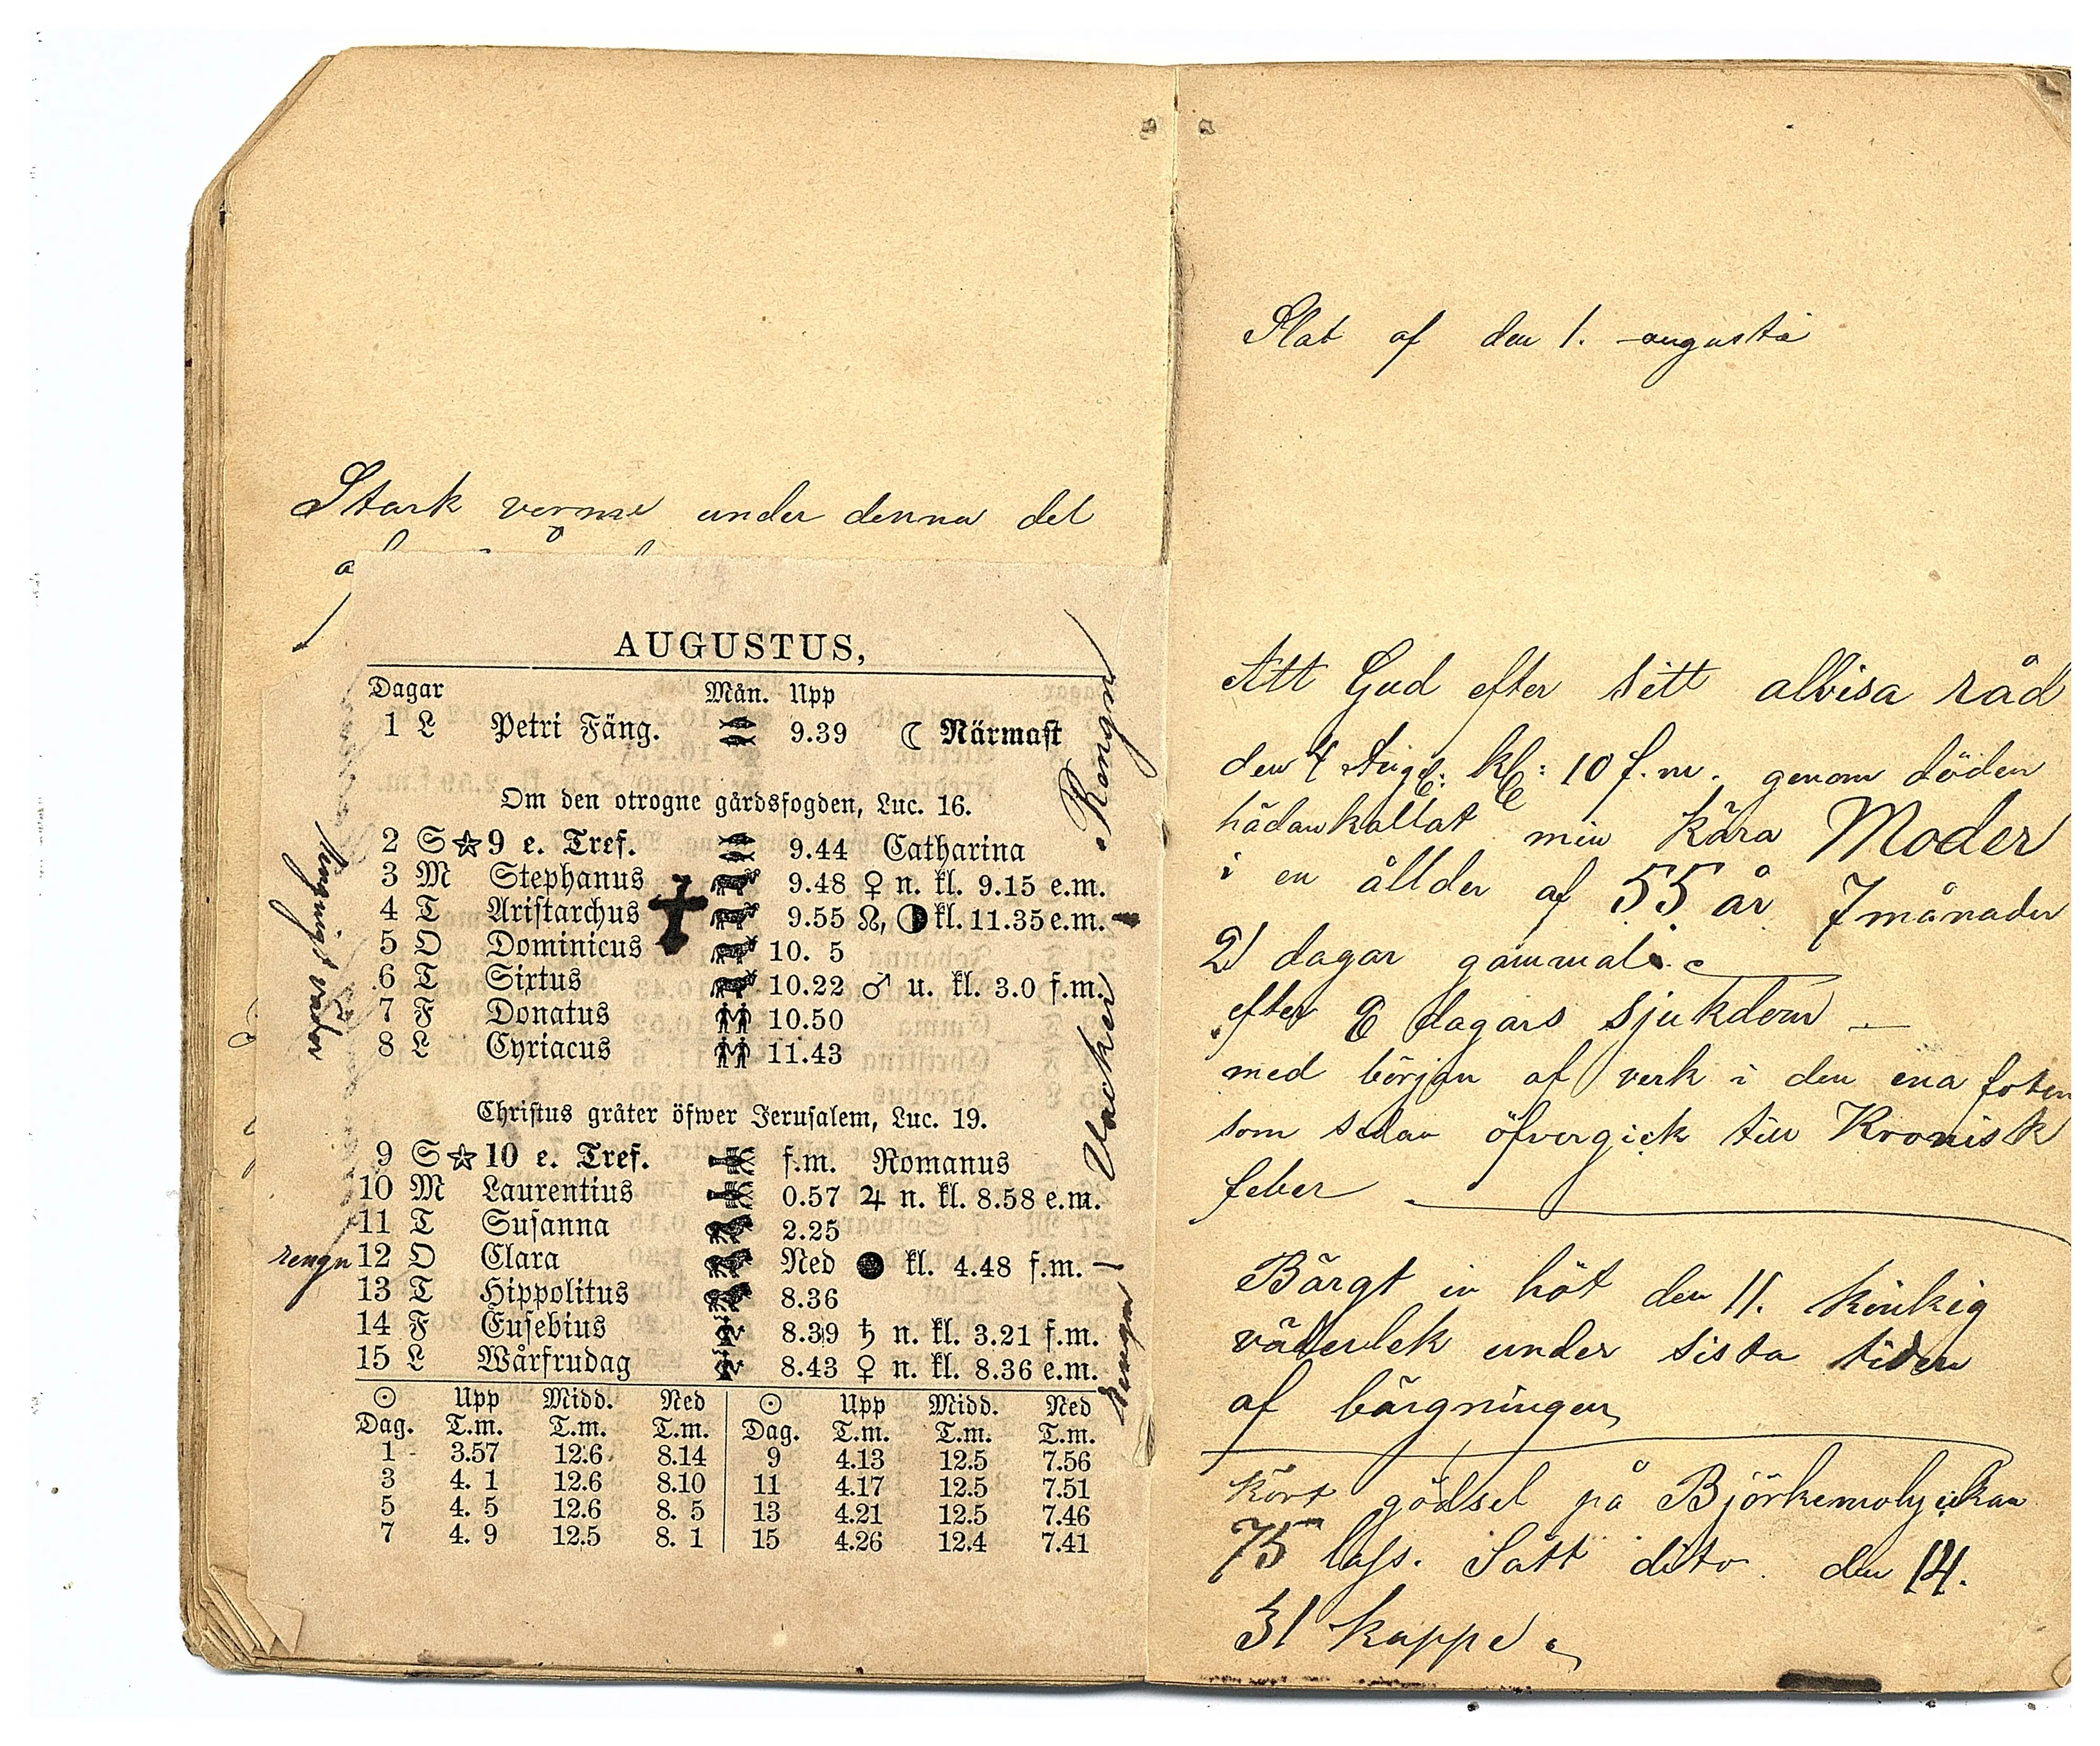 Stark verme under denna del
AUGUSTUS,
Dagar Mån. Upp
1 L Petri Fäng. 9.39 ☾ Närmast
Om den otrogne gårdsfogden, Luc. 16.
2 S ☆ 9 e. Tref. 9.44 Catharina
3 M Stephanus 9.48 ♀ n. kl. 9.15 e.m.
4 T Aristarchus 9.55 ☊, ◑ kl. 11.35 e.m.
5 O Dominicus 10. 5
6 T Sixtus 10.22 ♂ u. kl. 3.0 f.m.
7 F Donatus 10.50
8 L Cyriacus 11.43
Christus gråter öfwer Jerusalem, Luc. 19.
9 S ☆ 10 e. Tref. f.m. Romanus
10 M Laurentius 0.57 ♃ n. kl. 8.58 e.m.
11 T Susanna 2.25
rengn 12 O Clara Ned ● kl. 4.48 f.m.
13 T Hippolitus 8.36
14 F Eusebius 8.39 ♄ n. kl. 3.21 f.m.
15 L Wårfrudag 8.43 ♀ n. kl. 8.36 e.m.
☉ Upp Midd. Ned ☉ Upp Midd. Ned
Dag. T.m. T.m. T.m. Dag. T.m. T.m. T.m.
1 3.57 12.6 8.14 9 4.13 12.5 7.56
3 4. 1 12.6 8.10 11 4.17 12.5 7.51
5 4. 5 12.6 8. 5 13 4.21 12.5 7.46
7 4. 9 12.5 8. 1 15 4.26 12.4 7.41
Rengn
Vacker
Rengn
väder
Slat af den 1. augusti
Att Gud efter sitt allvisa råd
den 4 Aug: kl: 10 f.m. genom döden
hädankallat min Kära Moder
i en ållder af 55 år 7 månader
21 dagar gammal
efter 8 dagars sjukdom
med början af verk i den ena foten
som sedan öfvergick till Kronisk
feber
Bärgt in höt den 11.
väderlek under sista tiden
af bärgningen
Kört gödsel på Björkemolyckan
75 lass. Satt dito den 14.
31 kappe